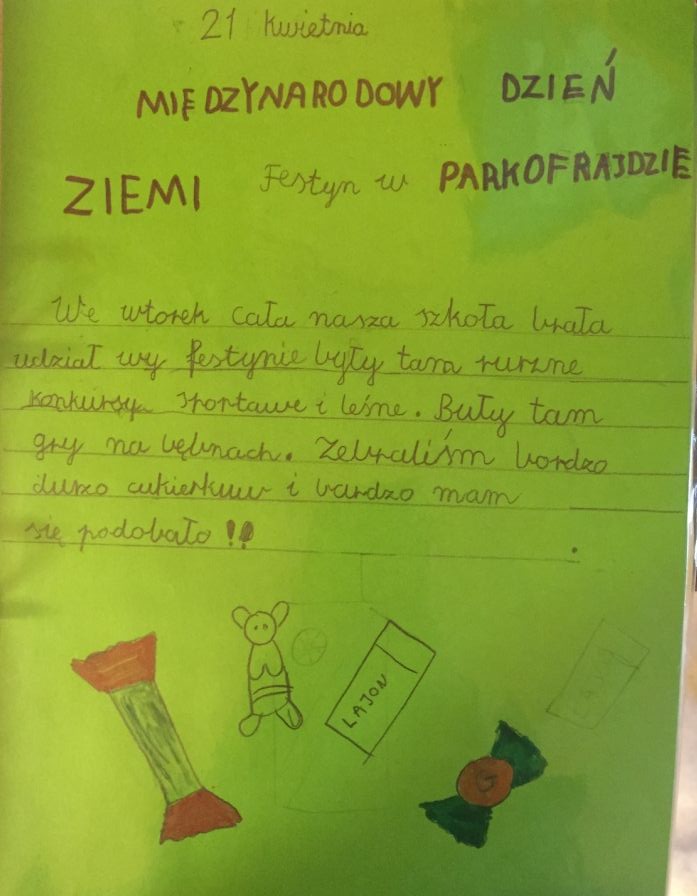 21 Kwietnia
MIĘDZYNARODOWY DZIEŃ
ZIEMI Festyn w PARKOFRAJDZIE
We wtorek cała nasza szkoła brała
udział wy festynie były tam rurzne
konkursy sportawe i leśne. Buły tam
gry na bębnach. Zebraliśm bordzo
durzo cukierkuw i bardzo mam
się podobało !!
LAJON
G